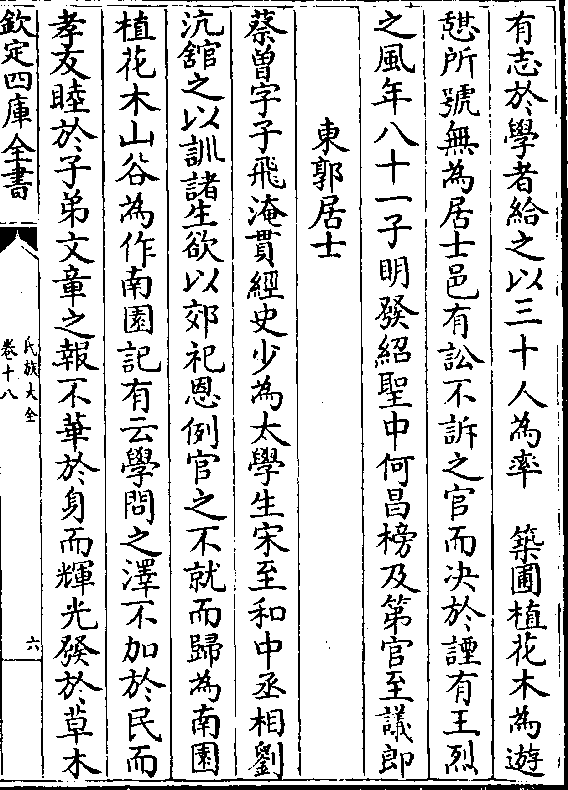 有志於學者給之以三十人為率　築圃植花木為遊
憇所號無為居士邑有訟不訴之官而决於諲有王烈
之風年八十一子明發紹聖中何昌榜及第官至議郎
東郭居士
蔡曾字子飛淹貫經史少為太學生宋至和中丞相劉
沆舘之以訓諸生欲以郊祀恩例官之不就而歸為南園
植花木山谷為作南園記有云學問之澤不加於民而
孝友睦於子弟文章之報不華於身而輝光發於草木
欽定四庫全書
氏族大全
卷十八
六